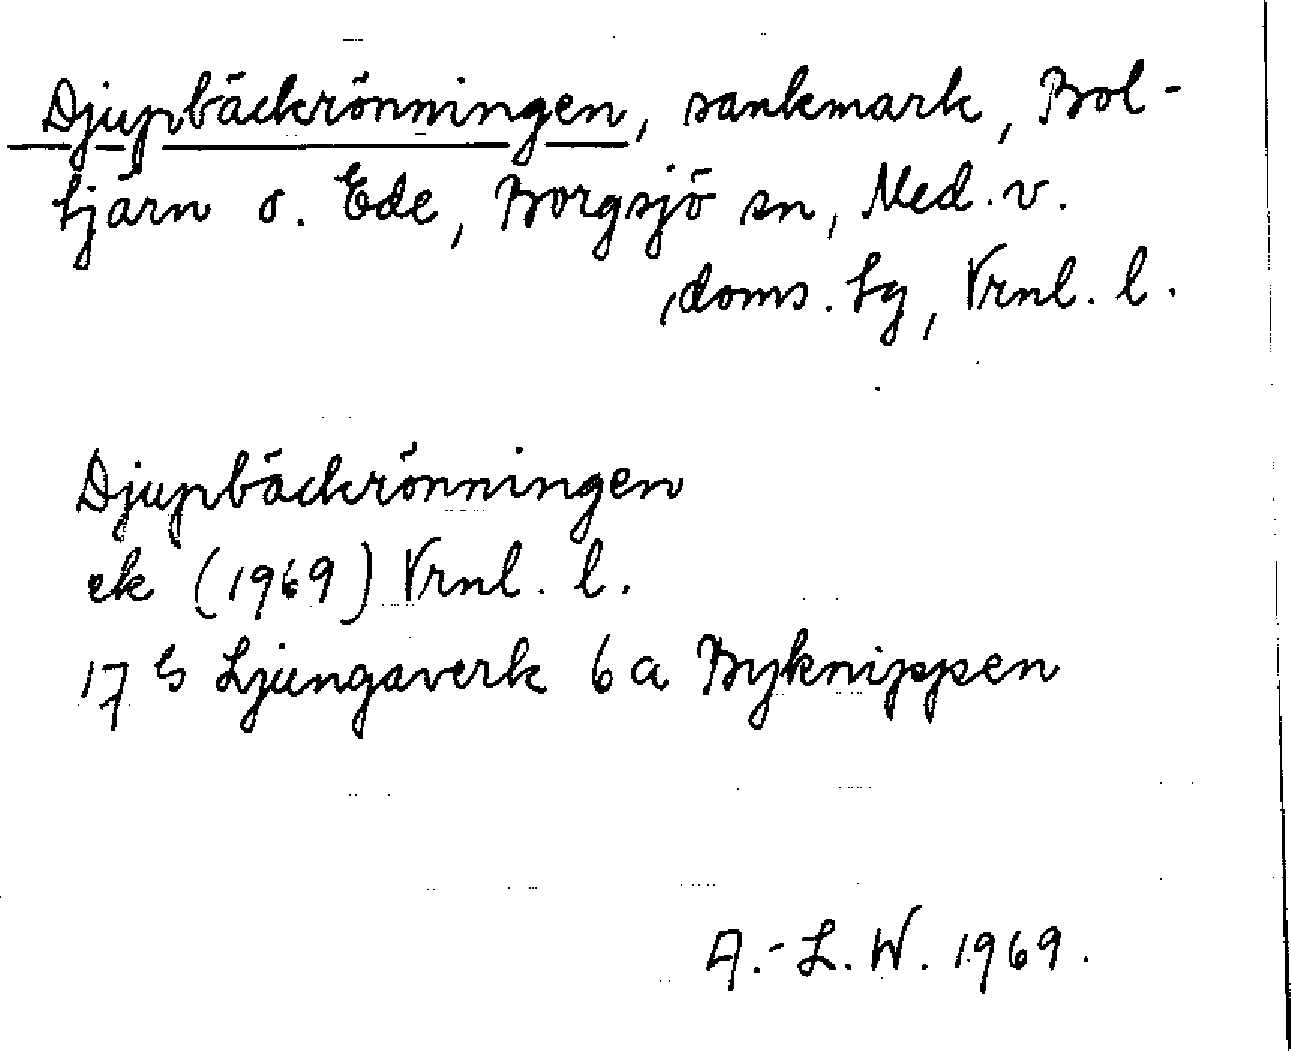 Djupbäckrönningen, sankmark, Bol-
tjärn o. Ede, Borgsjö sn, Med. v.
doms. tg, Vrnl. l.
Djupbäckrönningen
ek (1969) Vrnl. l.
17 G Ljungaverk 6 a Byknippen
A.-L. W. 1969.